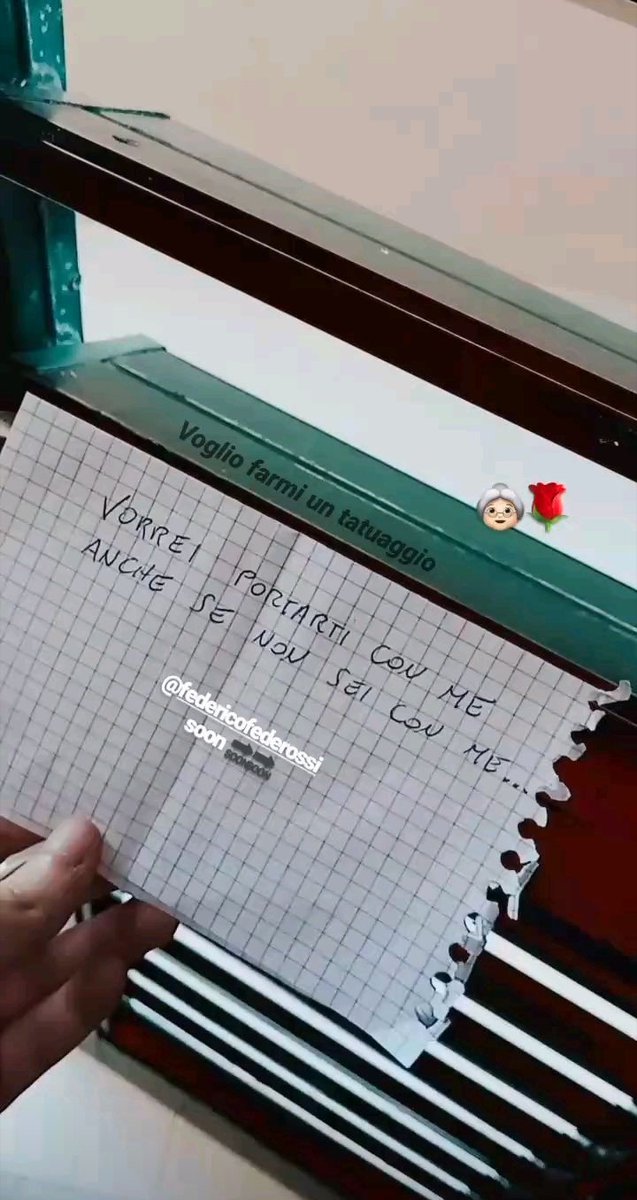 Voglio farmi un tatuaggio
VORREI PORTARTI CON ME
ANCHE SE NON SEI CON ME...
@federicofederossi
soon
SOON SOON